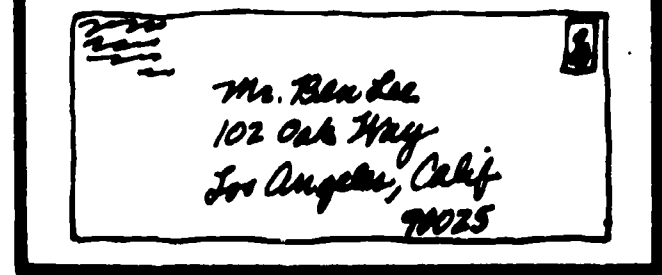 Mr. Ben Lee
102 Oak Way
Los Angeles, Calif
90025